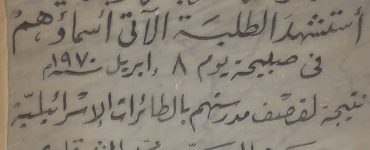 أستشهد الطلبة الآتى أسماؤهم
فى صبيحة يوم ٨ إبريل سنة ١٩٧٠م
نتيجة لقصف مدرستهم بالطائرات الإسرائيلية